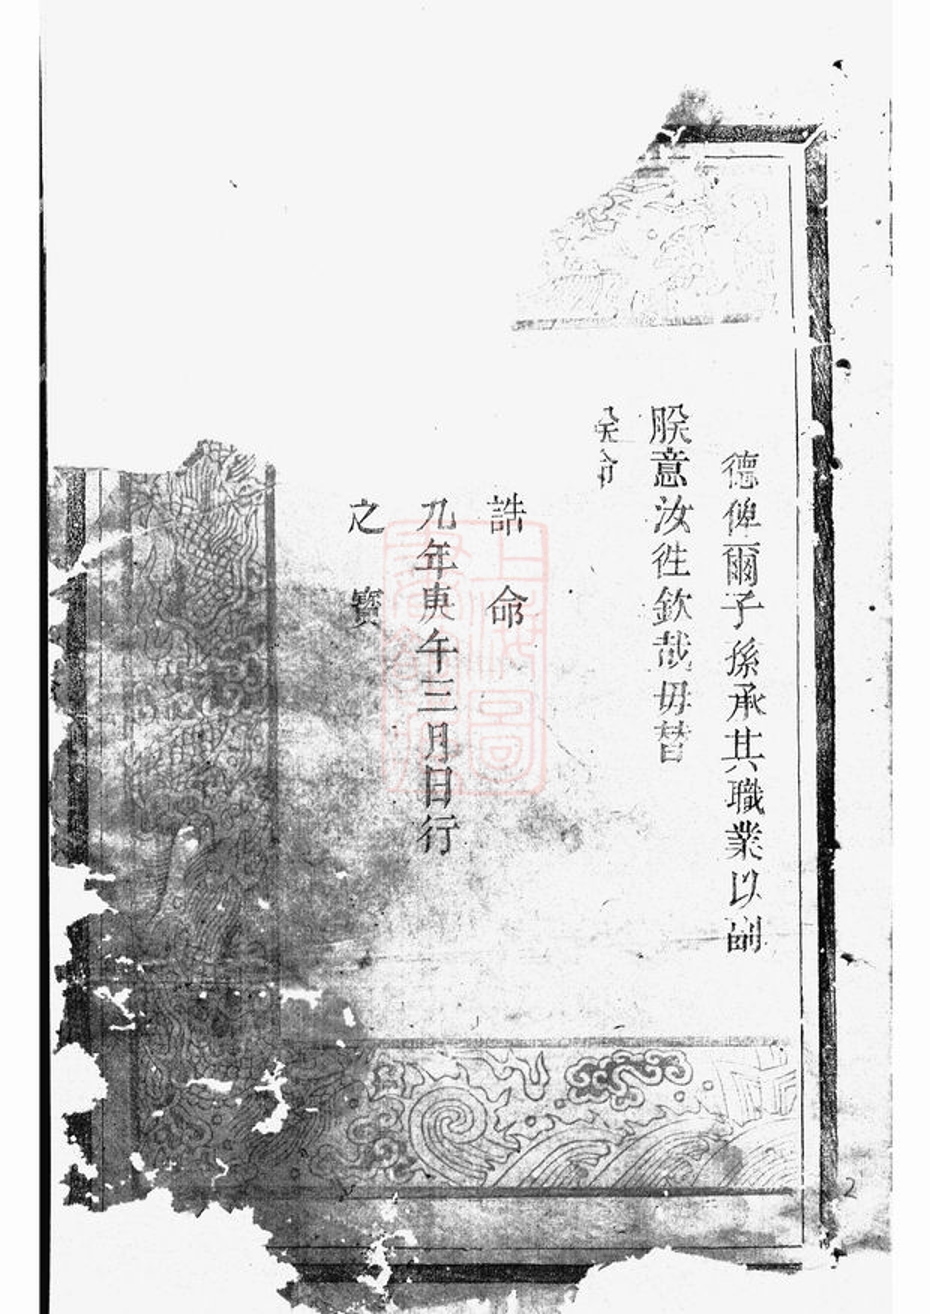 德俾爾子孫承其職業以副
朕意汝徃欽哉毋替
朕命
誥命
九年庚午三月日行
之寶
上海圖書館藏
2